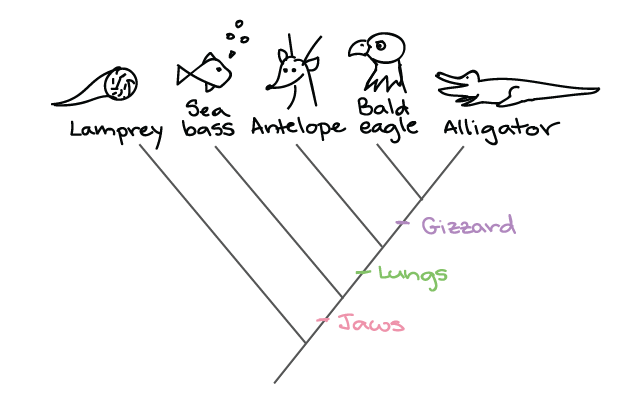 Lamprey
Sea
bass
Antelope
Bald
eagle
Alligator
Gizzard
Lungs
Jaws